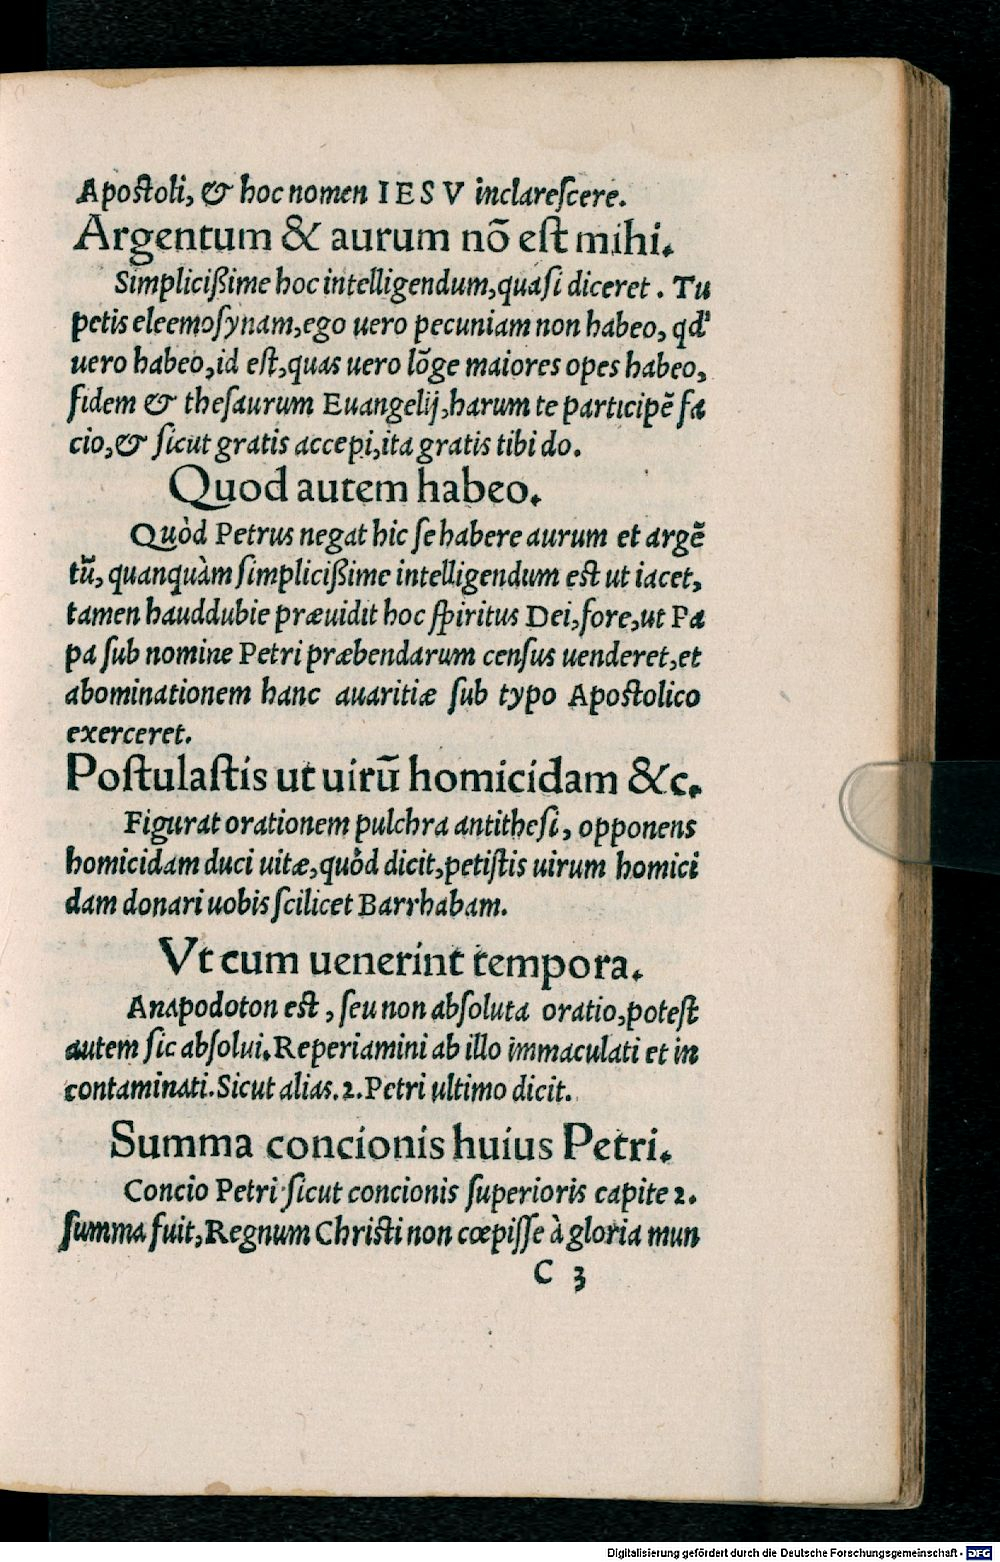 Apostoli, & hoc nomen IESV inclarescere.
Argentum & aurum nõ est mihi.
Simplicißime hoc intelligendum,quasi diceret . Tu
petis eleemosynam,ego uero pecuniam non habeo, qd'
uero habeo,id est,quas uero lõge maiores opes habeo,
fidem & thesaurum Euangelij,harum te participẽ fa
cio,& sicut gratis accepi,ita gratis tibi do.
Quod autem habeo.
Quòd Petrus negat hic se habere aurum et argẽ
tũ, quanquàm simplicißime intelligendum est ut iacet,
tamen hauddubie præuidit hoc spiritus Dei,fore,ut Pa
pa sub nomine Petri præbendarum census uenderet,et
abominationem hanc auaritiæ sub typo Apostolico
exerceret.
Postulastis ut uirũ homicidam &c.
Figurat orationem pulchra antithesi, opponens
homicidam duci uitæ,quòd dicit,petistis uirum homici
dam donari uobis scilicet Barrhabam.
Vt cum uenerint tempora.
Anapodoton est, seu non absoluta oratio,potest
autem sic absolui.Reperiamini ab illo immaculati et in
contaminati.Sicut alias.2.Petri ultimo dicit.
Summa concionis huius Petri.
Concio Petri sicut concionis superioris capite 2.
summa fuit,Regnum Christi non cœpisse à gloria mun
C 3
Digitalisierung gefördert durch die Deutsche Forschungsgemeinschaft - DFG